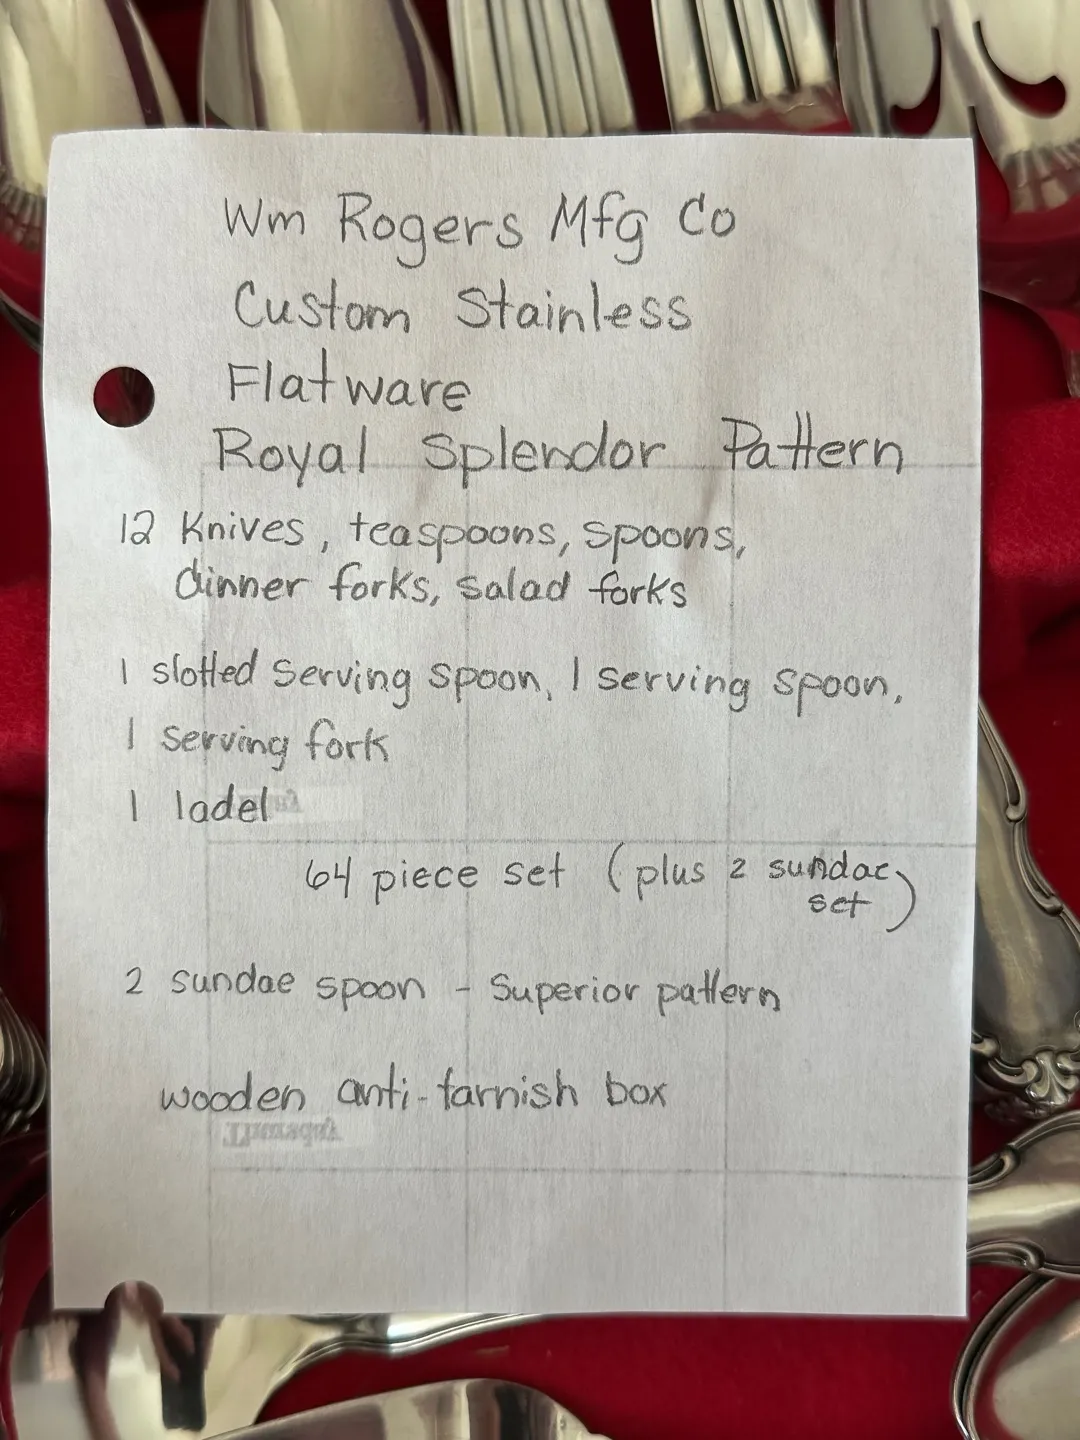 Wm Rogers Mfg Co
Custom Stainless
Flatware
Royal Splendor Pattern
12 Knives, teaspoons, spoons,
dinner forks, salad forks
1 slotted serving spoon, 1 serving spoon,
1 serving fork
1 ladel
64 piece set (plus 2 sundae
set)
2 sundae spoon - Superior pattern
wooden anti-tarnish box
Thursday